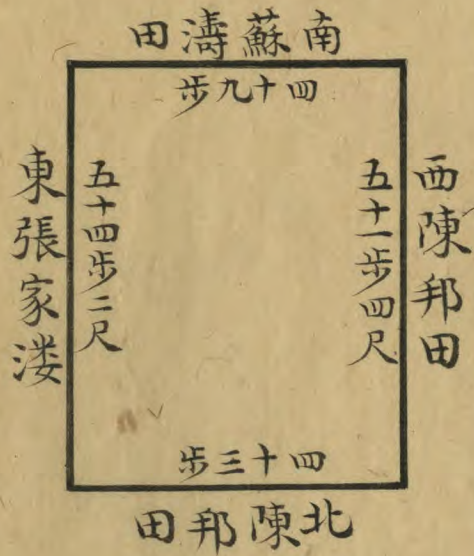 南蘇濤田
四十九步
西陳邦田
五十一步四尺
五十四步二尺
東張家溇
四十三步
北陳邦田